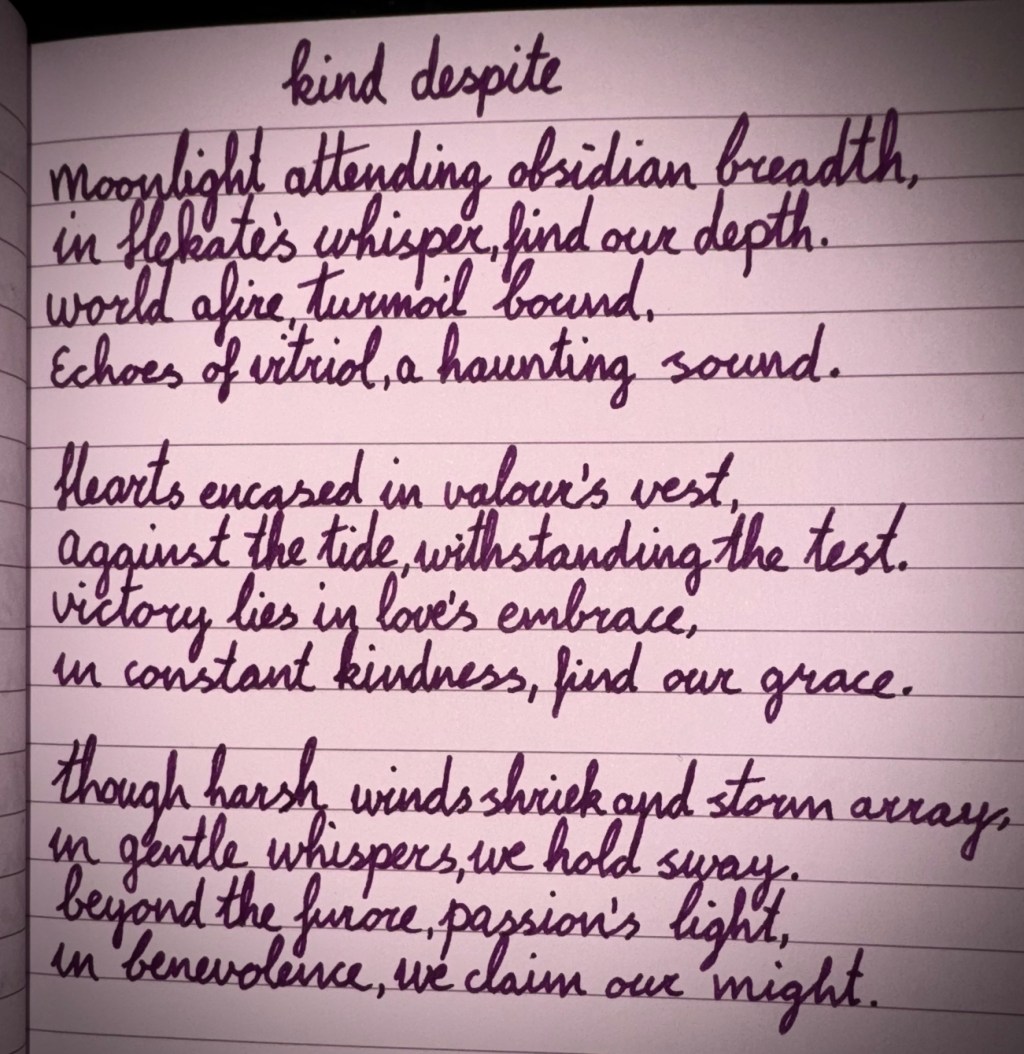 kind despite
Moonlight attending obsidian breadth,
in Hekate's whisper, find our depth.
world afire, turmoil bound,
Echoes of vitriol, a haunting sound.
Hearts encased in valour's vest,
against the tide, withstanding the test.
victory lies in love's embrace,
in constant kindness, find our grace.
though harsh winds shriek and storm array,
in gentle whispers, we hold sway.
beyond the furore, passion's light,
in benevolence, we claim our might.